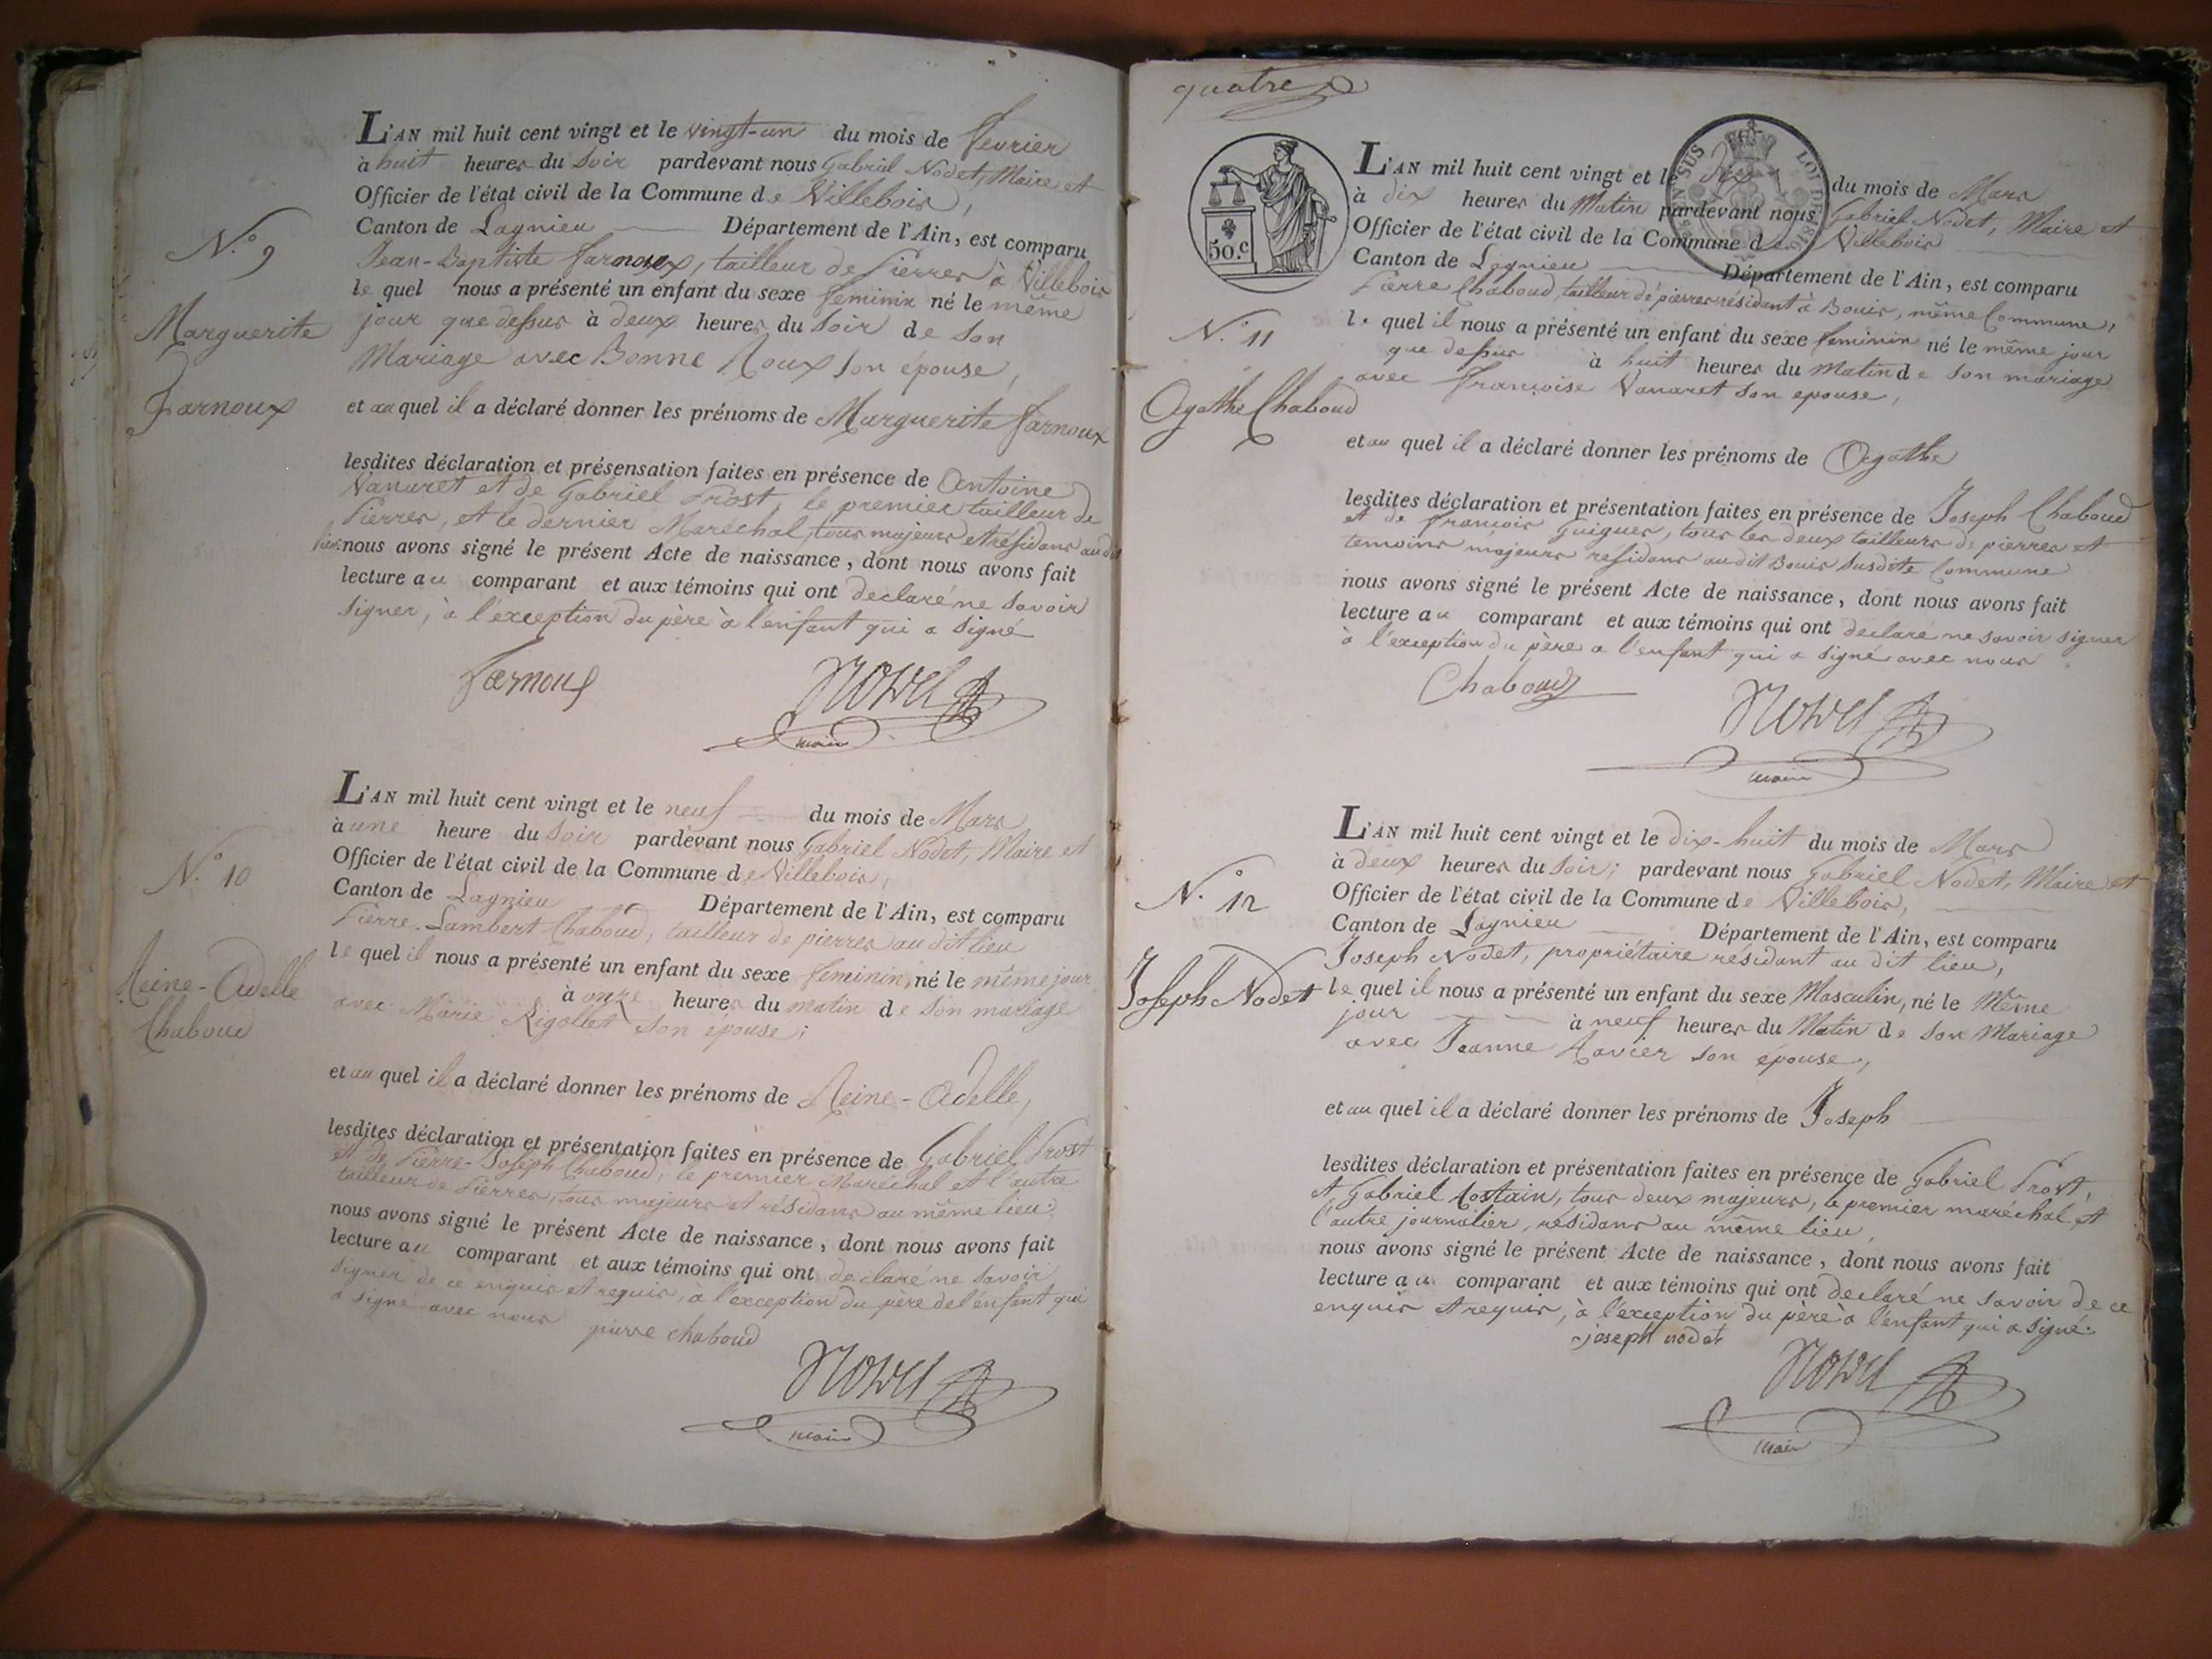 L'AN mil huit cent vingt et le vingt-un du mois de fevrier
à huit heures du soir pardevant nous Gabriel Nodet, Maire et
Officier de l'état civil de la Commune de Villebois,
Canton de Lagnieu Département de l'Ain, est comparu
N.° 9
Jean-Baptiste farnoux, tailleur de Pierres à Villebois
le quel nous a présenté un enfant du sexe feminin né le même
Marguerite
Farnoux
jour que dessus à deux heures du soir de son
Mariage avec Bonne Roux son épouse,
et au quel il a déclaré donner les prénoms de Marguerite farnoux
lesdites déclaration et présensation faites en présence de Antoine
Vanaret et de Gabriel Prost, le premier tailleur de
Pierres, et le dernier Maréchal, tous majeurs et résidans au dit
lieu. nous avons signé le présent Acte de naissance, dont nous avons fait
lecture au comparant et aux témoins qui ont declaré ne savoir
signer, à l'exception du père à l'enfant qui a signé
Farnoux
Nodet
maire
L'AN mil huit cent vingt et le neuf du mois de Mars
à une heure du soir pardevant nous Gabriel Nodet, Maire et
Officier de l'état civil de la Commune de Villebois,
N.° 10
Canton de Lagnieu Département de l'Ain, est comparu
Pierre-Lambert Chaboud, tailleur de pierres au dit lieu
le quel il nous a présenté un enfant du sexe feminin, né le même jour
Reine-Adelle
Chaboud
à onze heures du matin de son mariage
avec Marie Rigollet son epouse;
et au quel il a déclaré donner les prénoms de Reine-Adelle,
lesdites déclaration et présentation faites en présence de Gabriel Prost
et de Pierre-Joseph Chaboud, le premier Maréchal et l'autre
tailleur de Pierres, tous majeurs et résidans au même lieu,
nous avons signé le présent Acte de naissance, dont nous avons fait
lecture au comparant et aux témoins qui ont declaré ne savoir
signer de ce enquis et requis, à l'exception du père de l'enfant qui
a signé avec nous pierre chaboud
Nodet
maire
quatre
50.c
L'AN mil huit cent vingt et le du mois de Mars
à dix heures du Matin pardevant nous Gabriel Nodet, Maire et
Officier de l'état civil de la Commune de Villebois
Canton de Lagnieu Département de l'Ain, est comparu
Pierre Chaboud, tailleur de pierres résidant à Bouis, même Commune,
N.° 11
le quel il nous a présenté un enfant du sexe feminin né le même jour
que dessus à huit heures du matin de son mariage
Agathe Chaboud
avec françoise Vanaret son epouse,
et au quel il a déclaré donner les prénoms de Agathe
lesdites déclaration et présentation faites en présence de Joseph Chaboud
et de françois Guigues, tous les deux tailleurs de pierres et
temoins majeurs residans au dit Bouis susdite Commune
nous avons signé le présent Acte de naissance, dont nous avons fait
lecture au comparant et aux témoins qui ont declaré ne savoir signer
à l'exception du père a l'enfant qui a signé avec nous
Chaboud
Nodet
maire
L'AN mil huit cent vingt et le dix-huit du mois de Mars
à deux heures du soir; pardevant nous Gabriel Nodet, Maire et
N.° 12
Officier de l'état civil de la Commune de Villebois,
Canton de Lagnieu Département de l'Ain, est comparu
Joseph Nodet, propriétaire résidant au dit lieu,
Joseph Nodet
le quel il nous a présenté un enfant du sexe Masculin, né le Même
jour à neuf heures du Matin de son Mariage
avec Jeanne Ravier son épouse,
et au quel il a déclaré donner les prénoms de Joseph
lesdites déclaration et présentation faites en présence de Gabriel Prost,
et Gabriel Rostain, tous deux majeurs, le premier maréchal et
l'autre journalier, résidans au même lieu,
nous avons signé le présent Acte de naissance, dont nous avons fait
lecture au comparant et aux témoins qui ont declaré ne savoir de ce
enquis et requis, à l'exception du père à l'enfant qui a signé.
joseph nodet
Nodet
maire